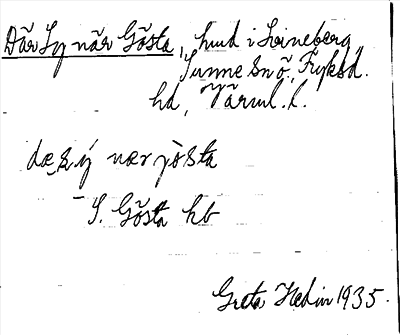 Där Sy när Gösta, hmd i Leineberg
Sunne sn ö. Fryksd.
hd, Värml. l.
dæ ṣ.ý nær jösta
S. Gösta hb
Greta Hedin 1935.